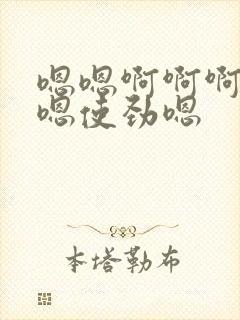 嗯嗯啊啊啊
嗯使劲嗯
本塔勒布